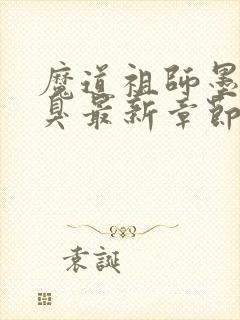 魔道祖師墨
臭最新章節
袁誕